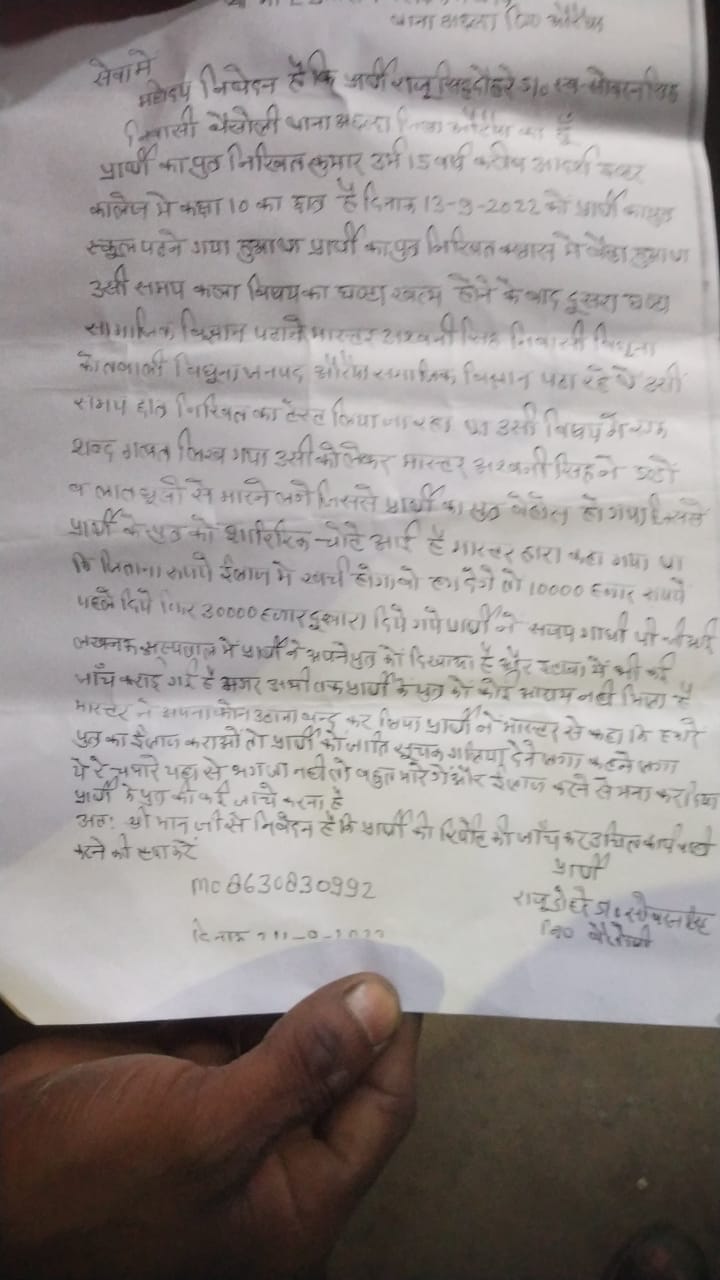 थाना अछल्दा जि० औरैया
सेवा में
महोदय निवेदन है कि प्रार्थी राजू सिंह दोहरे S/o स्व० सोबरन सिंह
निवासी वैसोली थाना अछल्दा जिला औरैया का हूँ
प्रार्थी का पुत्र निखित कुमार उम्र 15 वर्ष करीब आदर्श इण्टर
कालेज मे कक्षा 10 का छात्र है दिनांक 13-9-2022 को प्रार्थी का पुत्र
स्कूल पढने गया हुआ था प्रार्थी का पुत्र निखित क्लास मे बैठा हुआ था
उसी समय कला विषय का घण्टा खत्म होने के बाद दूसरा घण्टा
सामाजिक विज्ञान पढाने मास्टर अश्वनी सिंह निवासी बिधूना
कोतवाली बिधूना जनपद औरैया समाजिक विज्ञान पढा रहे थे उसी
समय छात्र निखित का टेस्ट लिया जा रहा था उसी विषय में एक
शब्द गलत लिख गया उसी को लेकर मास्टर अश्वनी सिंह ने
व लात घूसो से मारने लगे जिससे प्रार्थी का पुत्र बेहोस हो गया जिससे
प्रार्थी के पुत्र को शारिरिक चोटे आई है मास्टर द्वारा कहा गया था
कि जितना रूपये ईलाज मे खर्चा होगा वो हम देंगे तो 10000 हजार रूपये
पहले दिये फिर 30000 हजार दुबारा दिये गये प्रार्थी ने सजय गाधी पी जी आई
लखनऊ अस्पताल में प्रार्थी ने अपने पुत्र को दिखाया है और इटावा में भी कई
जाँच कराई गई है मगर अभी तक प्रार्थी के पुत्र को कोई आराम नही मिला है
मास्टर ने अपना फोन उठाना बन्द कर लिया प्रार्थी ने मास्टर से कहा कि हमारे
पुत्र का ईलाज कराओ तो प्रार्थी को जाति सूचक गालिया देने लगा कहने लगा
ये रे चमारे यहा से भग जा नही तो बहुत मारेगे और ईलाज करने से मना कर दिया
प्रार्थी के पुत्र की कई जाचे करना है
अतः श्री मान जी से निवेदन है कि प्रार्थी की रिपोर्ट की जाँच कर उचित कार्यवाही
करने की दया करें
प्रार्थी
mc 8630830992
राजू दोहरे S/o सोबरन सिंह
नि० वैसोली
दिनांक